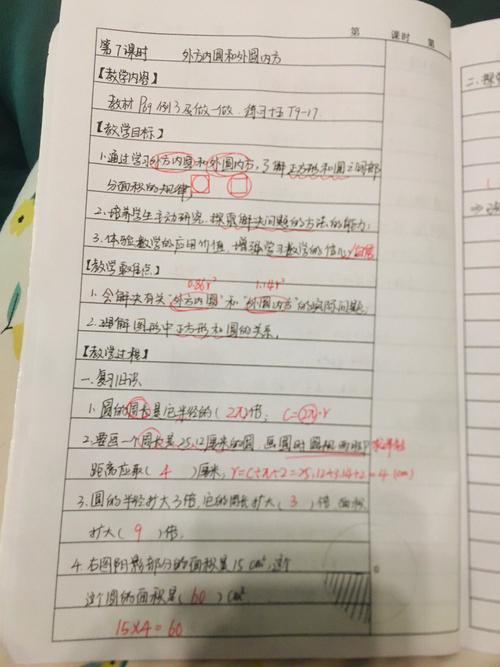 第 课时 第
第7课时 外方内圆和外圆内方
【教学内容】
教材P69例3及做一做,练习十五T9-17
【教学目标】
1.通过学习外方内圆和外圆内方,了解正方形和圆之间部
分面积的规律,
2.培养学生主动研究、探索解决问题的方法的能力;
3.体验数学的应用价值,增强学习数学的信心
【教学重难点】
0.86r² 1.14r²
1.会解决有关"外方内圆"和"外圆内方"的实际问题;
2.理解图形中正方形和圆的关系。
【教学过程】
一.复习旧识
1.圆的周长是它半径的(2π)倍; C=2π·r
2.要画一个周长是25.12厘米的圆,画圆时圆规两脚
距离应取( 4 )厘米, r=C÷π÷2=25.12÷3.14÷2=4(cm)
3.圆的半径扩大3倍,它的周长扩大( 3 )倍 面积
扩大( 9 )倍,
4.右图阴影部分的面积是15cm²,这个
这个圆的面积是( 60 )cm²
15×4=60